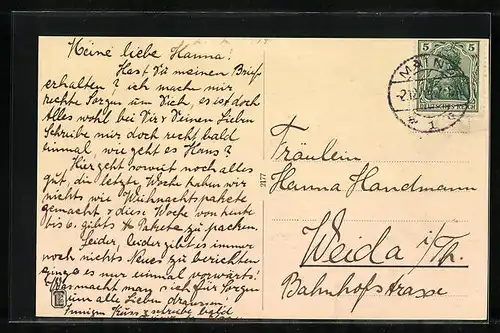 Meine liebe Hanna!
Hast Du meinen Brief
erhalten? ich mache mir
rechte Sorgen um Dich, es ist doch
Alles wohl bei Dir & Deinen Lieben
Schreibe mir doch recht bald
einmal, wie geht es Hans?
Hier geht soweit noch alles
gut, die letzte Woche haben wir
nichts wie Weihnachtspakete
gemacht & diese Woche von heute
bis 6. gibts Pakete zu packen.
Leider, leider gibt es immer
noch nichts Neues zu berichten
ginge es nur einmal vorwärts!
Was macht man sich für Sorgen
um alle Lieben draussen!
Innigen Kuss & schreibe bald
2177
5 5
DEUTSCHES REICH
MAINZ
* 1
Fräulein
Hanna Handmann
Weida i/Th.
Bahnhofstrasse